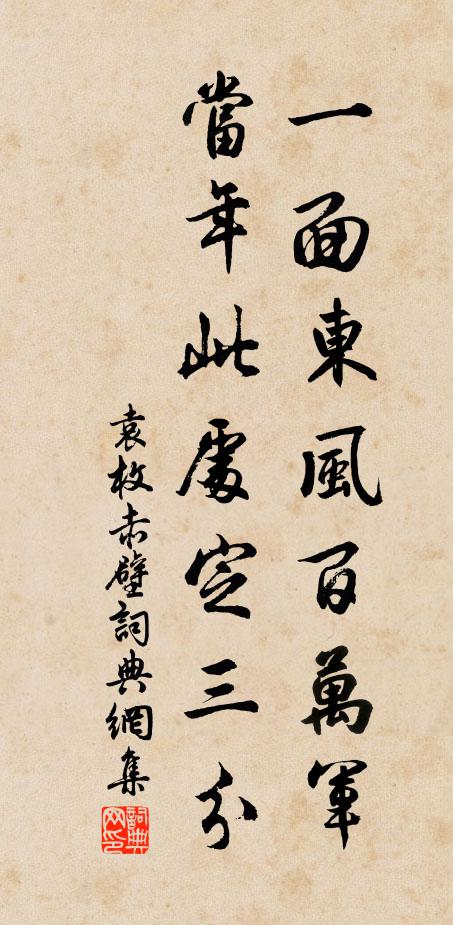 一面東風百萬軍
當年此處定三分
袁枚赤壁詞典網集
詞典网印